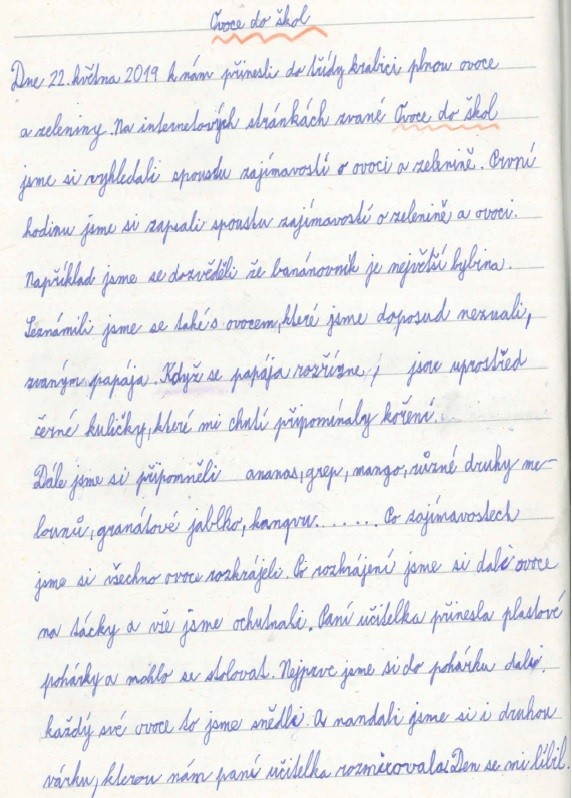 Ovoce do škol
Dne 22. května 2019 k nám přinesli do třídy krabici plnou ovoce
a zeleniny. Na internetových stránkách zvané Ovoce do škol
jsme si vyhledali spoustu zajímavostí o ovoci a zelenině. První
hodinu jsme si zapsali spoustu zajímavostí o zelenině a ovoci.
Například jsme se dozvěděli že banánovník je největší bylina.
Seznámili jsme se také s ovocem, které jsme doposud neznali,
zvaným papája. Když se papája rozřízne, jsou uprostřed
černé kuličky, které mi chutí připomínaly koření.
Dále jsme si připomněli ananas, grep, mango, různé druhy me-
lounů, granátové jablko, kangvu....... Po zajímavostech
jsme si všechno ovoce rozkrájeli. Po rozkrájení jsme si dali ovoce
na tácky a vše jsme ochutnali. Paní učitelka přinesla plastové
pohárky a mohlo se stolovat. Nejprve jsme si do pohárku dali,
každý své ovoce to jsme snědli. A nandali jsme si i druhou
várku, kterou nám paní učitelka rozmixovala. Den se mi líbil.